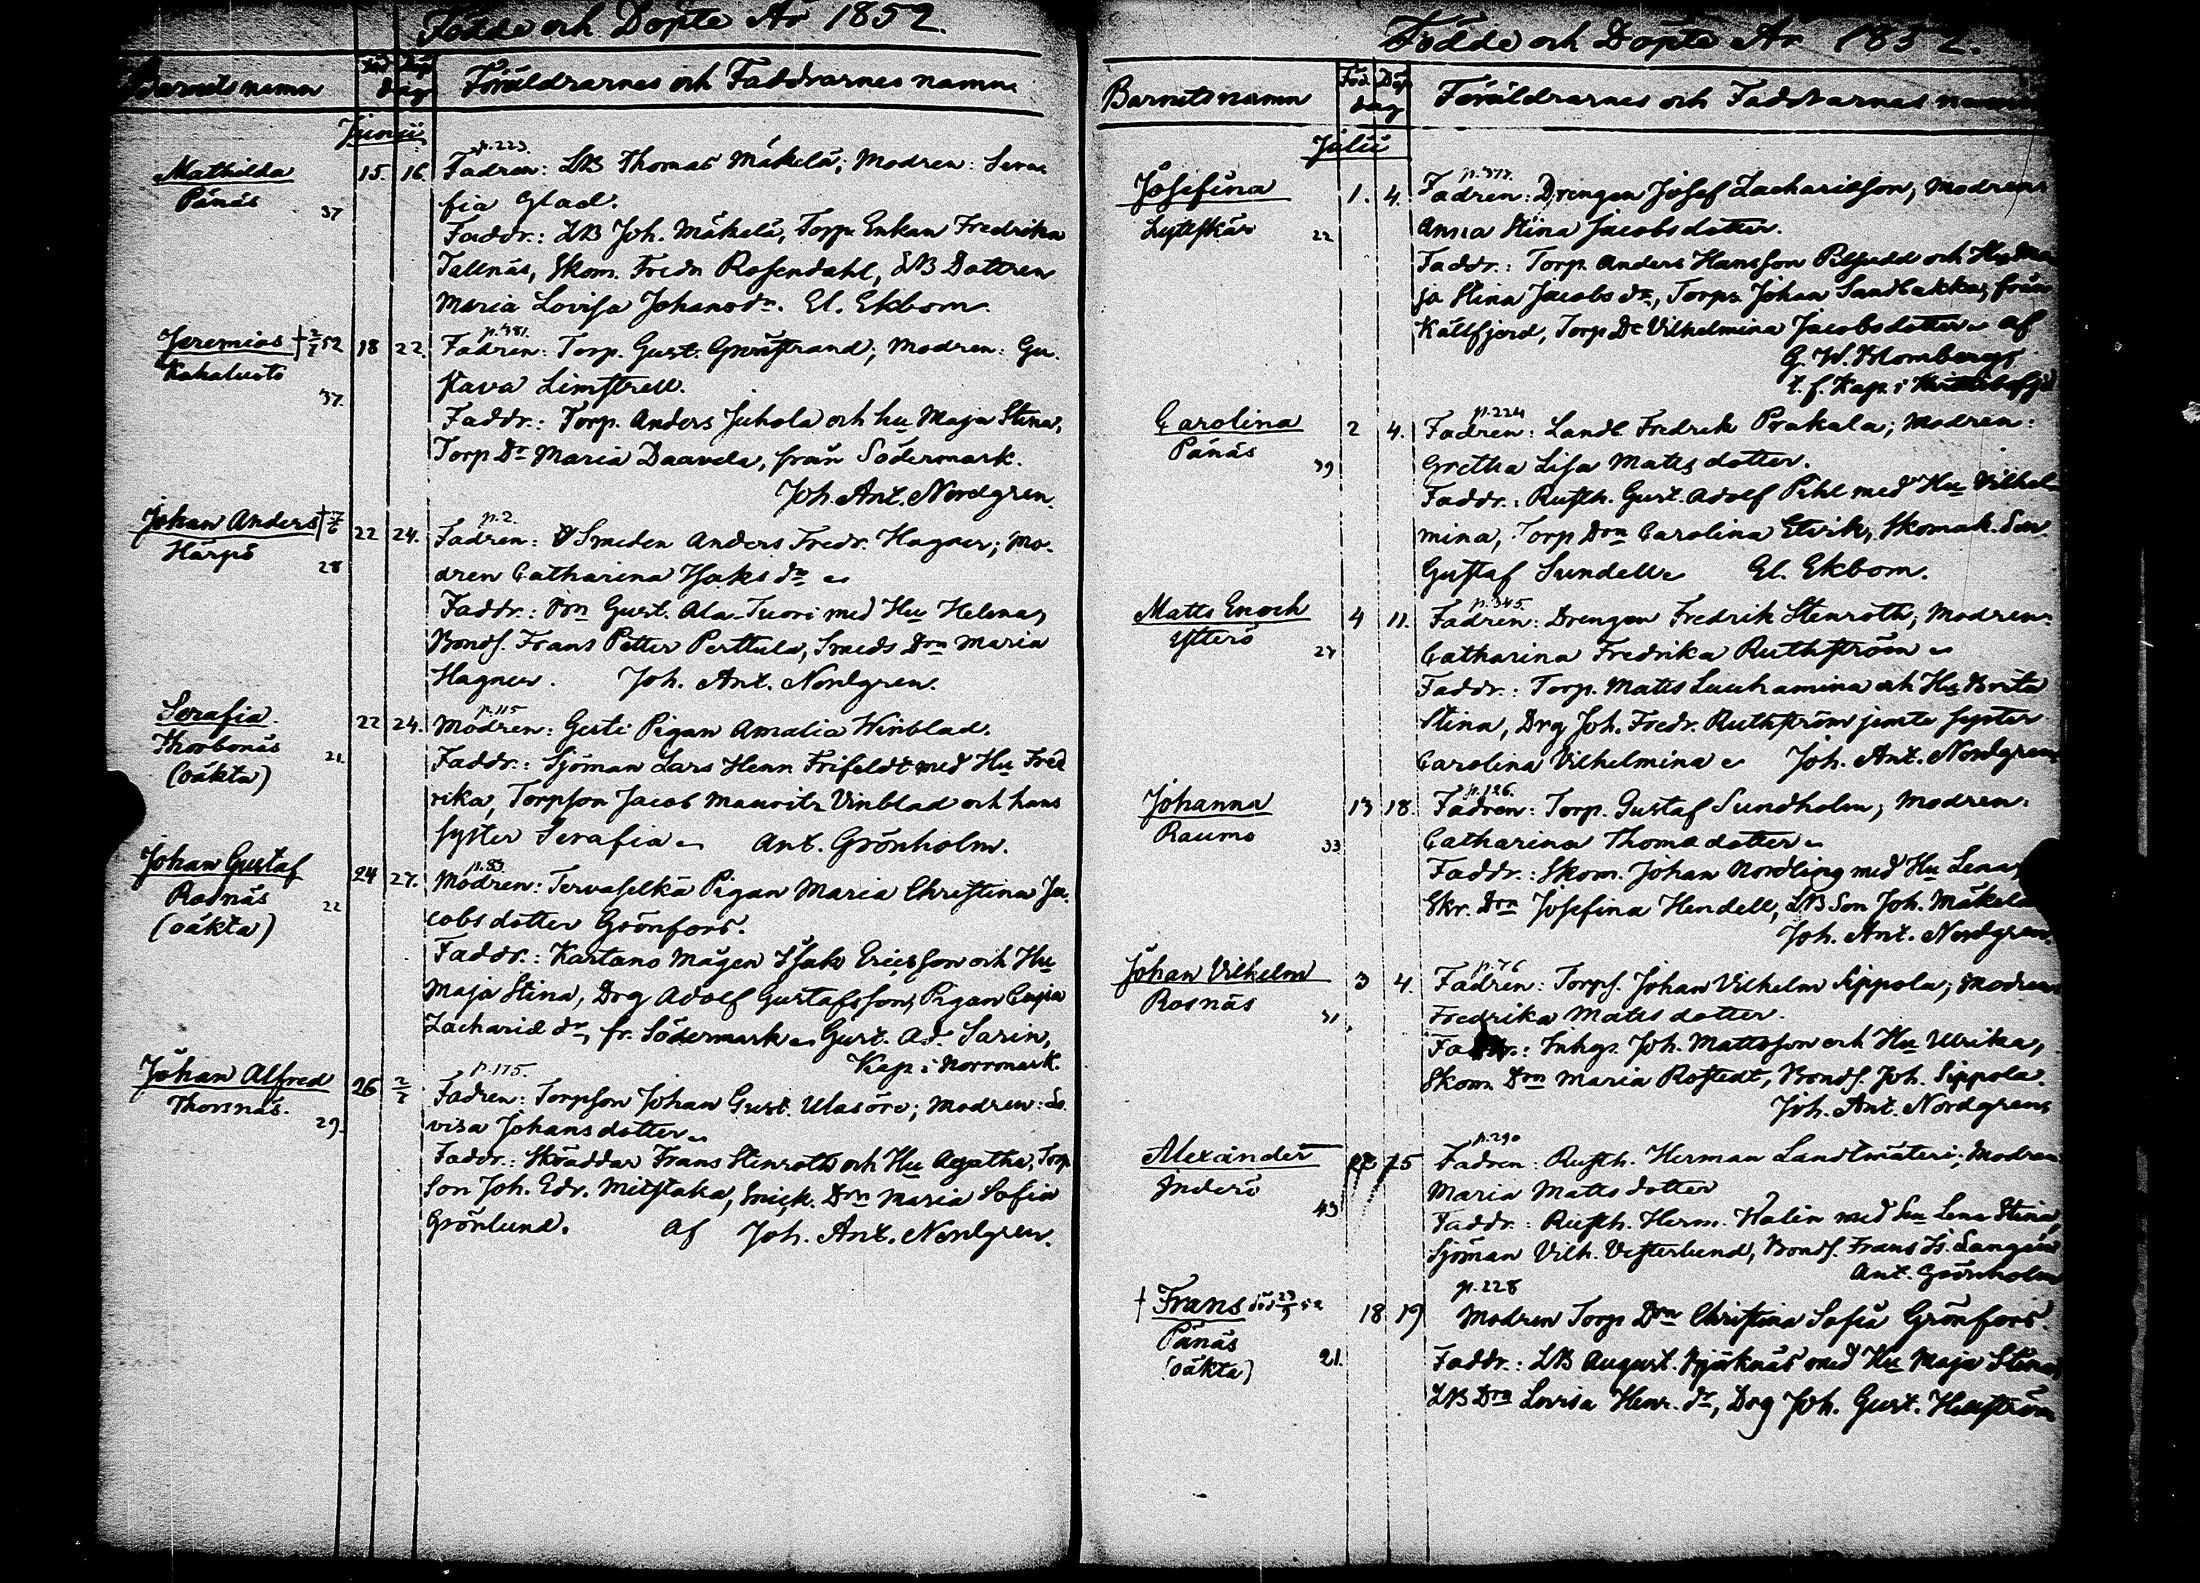 Födde och Döpte År 1852.
Barnets namn Föd Döp dag Föräldrarnes och Faddrarnes namn
Junii
p. 223.
Mathilda 15. 16. Fadren: LB Thomas Mäkelä; Modren: Sera
Pånäs 37 fia Glad.
Faddr.: LB Joh. Mäkelä, Torp. Enkan Fredrika
Tallnäs, Skom. Fredr Rosendahl, LB Dottren
Maria Lovisa Johansdr. El. Ekbom.
p. 381.
Jeremias † 2/7 52 18 22. Fadren: Torp. Gust. Grönstrand; Modren: Gu-
Kahaluoto stava Limstrell.
37.
Faddr.: Torp. Anders Juhola och hu Maja Stina,
Torp Dr Maria Daavela, från Södermark.
Joh. Ant. Nordgren.
p. 2.
Johan Anders 22 24. Fadren: Smeden Anders Fredr. Hagner; Mo-
Härpö 28 dren Catharina Isaks dr
Faddr.: Bn Gust. Ala-Tuori med Hu Helena,
Bonds. Frans Petter Perttula, Smeds Drn Maria
Hagner. Joh. Ant. Nordgren.
p. 115
Serafia 22 24. Modren: Gertr Pigan Amalia Winblad.
Thorbonäs 21. Faddr.: Sjöman Lars Henr. Frifeldt med Hu Fred
(oäkta) rika, Torpson Jacob Mauritz Vinblad och hans
syster Serafia. Ant. Grönholm.
p. 83.
Johan Gustaf 24 27. Modren: Tervaselkä Pigan Maria Christina Ja-
Rosnäs 22 cobsdotter Grönfors.
(oäkta)
Faddr.: Kartano Mågen Isak Ericsson och Hu
Maja Stina, Drg Adolf Gustafsson, Pigan Cajsa
Zacharie dr, fr. Södermark. Gust. Ad. Sarin,
Kap. i Norrmark.
p. 175.
Johan Alfred 26 2/7 Fadren: Torpson Johan Gust. Ulasöre; Modren: Lo-
Thorsnäs. 29. visa Johansdotter.
Faddr.: Skräddar Frans Stenroth och Hu Agatha, Torp
son Joh. Edv. Mitstaka, Snick. Drn Maria Sofia
Grönlund. af Joh. Ant. Nordgren.
Födde och Döpte År 1852.
Barnets namn Föd Döp dag Föräldrarnes och Faddrarnes namn
Julii
Josefina 1. 4. Fadren: Drengen Josef Zachariasson; Modren:
Lyttskär 22 Anna Stina Jacobsdotter.
Faddr.: Torp. Anders Hansson och Hu Ma
ja Stina Jacobs dr, Torp. Johan Sandbakka, från
Kållfjerd, Torp Dr Vilhelmina Jacobsdotter. af
G. W. Blomberg,
t. f. Kap. i
p. 224
Carolina 2 4. Fadren: Landb. Fredrik Prakala; Modren:
Pånäs 39 Gretha Lisa Matts dotter.
Faddr.: Rusth. Gust. Adolf Pihl med Hu Vilhel
mina, Torp Drn Carolina Elvik, Skomak. Son
Gustaf Sundell. El. Ekbom.
p. 345.
Matts Enoch 4 11. Fadren: Drengen Fredrik Stenroth; Modren:
Ytterö 27 Catharina Fredrika Ruthström
Faddr.: Torp. Matts Luuhamina och Hu Brita
Stina, Drg Joh. Fredr. Ruthström jemte syster
Carolina Vilhelmina. Joh. Ant. Nordgren
p. 126.
Johanna 13 18. Fadren: Torp. Gustaf Sundholm; Modren:
Raumo 33 Catharina Thomædotter
Faddr.: Skom. Johan Nordling med Hu Lena,
Skr. Drn Josefina Hendell, LB Son Joh. Mäkelä
Joh. Ant. Nordgren.
p. 76
Johan Vilhelm 3 4. Fadren: Torps. Johan Vilhelm Sippola; Modren
Rosnäs 31. Fredrika Matts dotter.
Faddr.: Inhgs. Joh. Mattsson och Hu Ulrika,
Skom. Drn Maria Rostedt, Bonds. Joh. Sippola.
Joh. Ant. Nordgren
p. 290
Alexander 15 Fadren: Rusth. Herman Landtmäteri; Modren
Inderö 43 Maria Matts dotter
Faddr.: Rusth. Herm. Walin med hu Lena Stina,
Sjöman Vilh. Vesterlund, Bonds. Frans Is. Langén
Ant. Grönholm
p. 228
† Frans död 52 18 19 Modren Torp Drn Christina Sofia Grönfors.
Pånäs 21. Faddr.: LB August. Björknäs med Hu Maja Stina,
(oäkta) LB Drn Lovisa Henr. dr, Drg Joh. Gust. Hellström